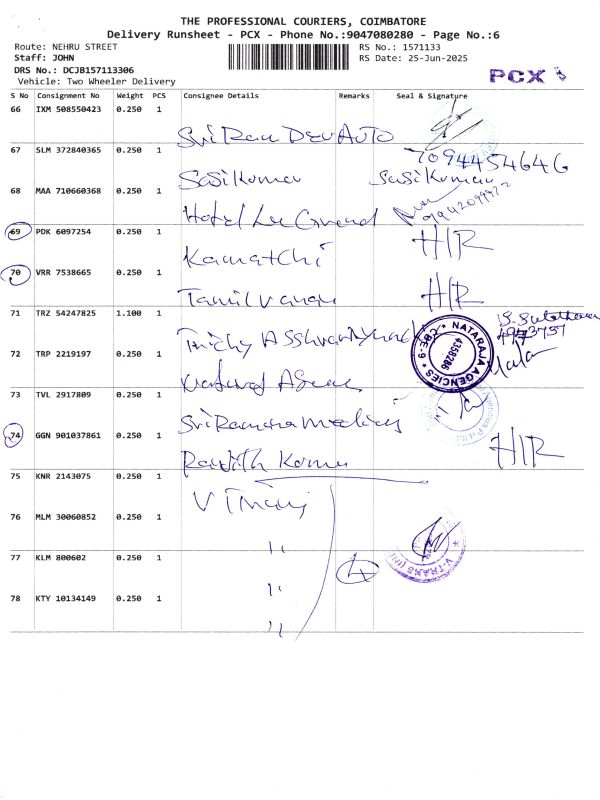 THE PROFESSIONAL COURIERS, COIMBATORE
Delivery Runsheet - PCX - Phone No.:9047080280 - Page No.:6
Route: NEHRU STREET
RS No.: 1571133
Staff: JOHN
RS Date: 25-Jun-2025
DRS No.: DCJB157113306
Vehicle: Two Wheeler Delivery
PCX
S No Consignment No Weight PCS Consignee Details Remarks Seal & Signature
66 IXM 508550423 0.250 1
Sri Ram Dev Auto
67 SLM 372840365 0.250 1
7094454646
Sasikumar Sasikumar
68 MAA 710660368 0.250 1
Hotel
69 PDK 6097254 0.250 1
HIR
Kamatchi
70 VRR 7538665 0.250 1
HIR
Tamilvanan
71 TRZ 54247825 1.100 1
Trichy
NATARAJA AGENCIES * CBE-9 *
4358286
72 TRP 2219197 0.250 1
73 TVL 2917809 0.250 1
Sri Ramana
74 GGN 901037861 0.250 1
HIR
75 KNR 2143075 0.250 1
V Trans
76 MLM 30060852 0.250 1
"
V-TRANS
77 KLM 800602 0.250 1
4
"
78 KTY 10134149 0.250 1
"